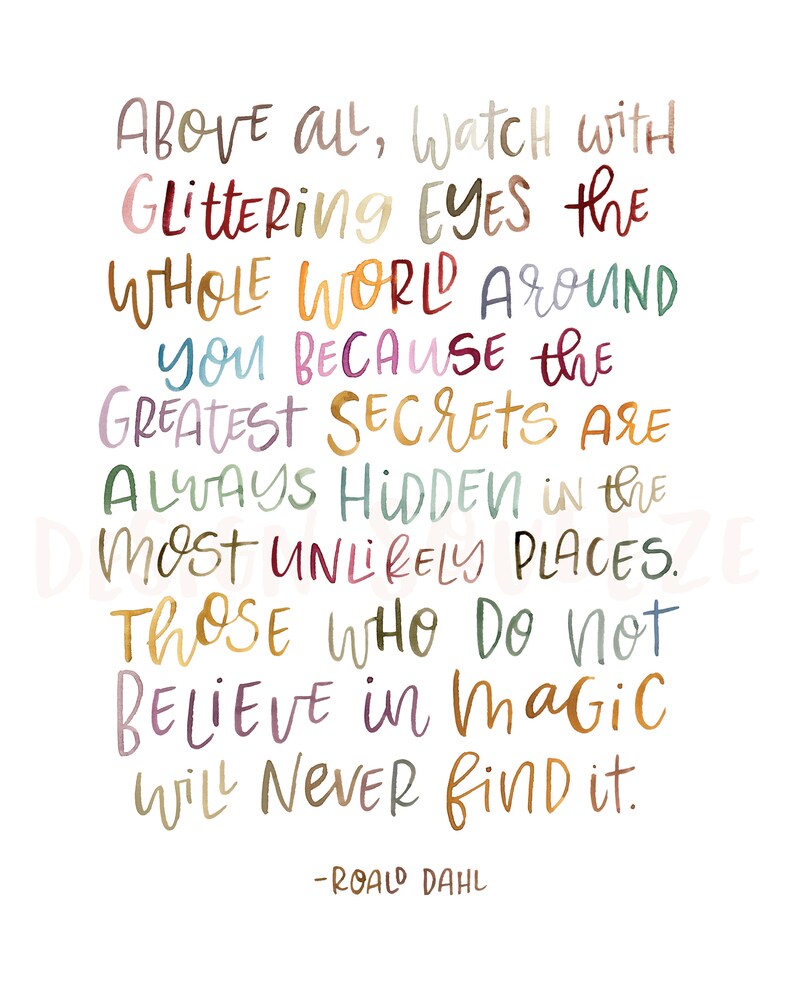 Above all, watch with
glittering eyes the
whole world around
you because the
greatest secrets are
always hidden in the
most unlikely places.
Those who do not
believe in magic
will never find it.
-Roald Dahl
DESIGN SQUEEZE